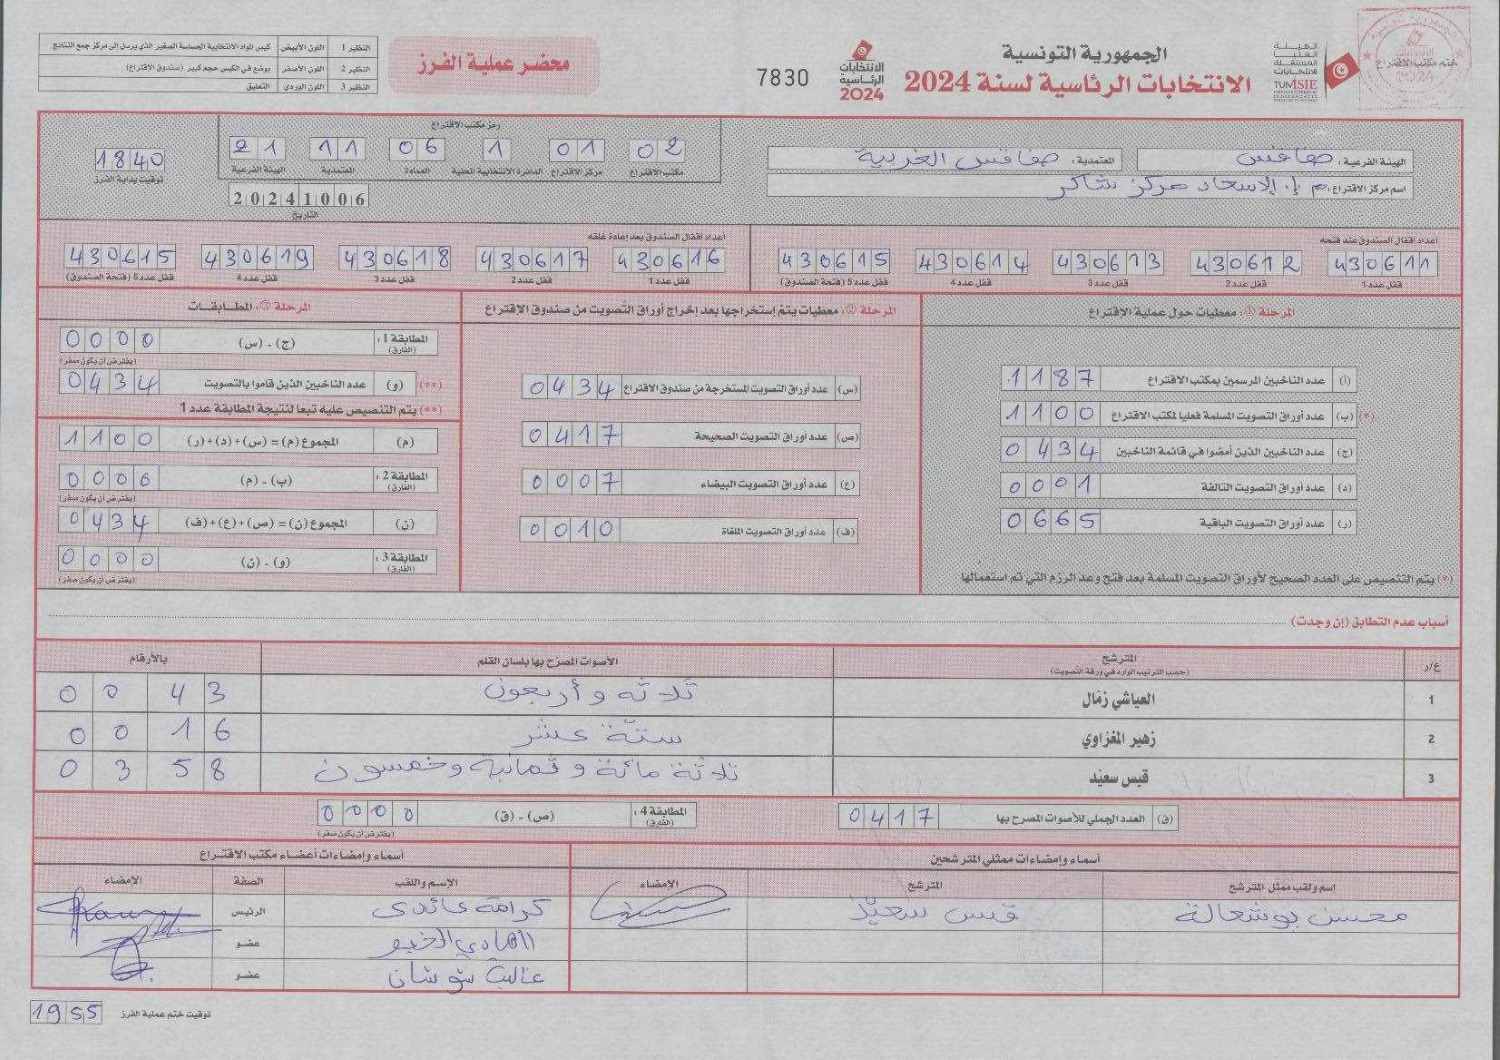 النظير 1 اللون الأبيض كيس المواد الانتخابية الحساسة الصغير الذي يرسل إلى مركز جمع النتائج
النظير 2 اللون الأصفر يوضع في الكيس حجم كبير (صندوق الاقتراع)
النظير 3 اللون الوردي التعليق
محضر عملية الفرز
7830
الانتخابات الرئاسية 2024
الجمهورية التونسية
الانتخابات الرئاسية لسنة 2024
الهيئة العليا المستقلة للانتخابات
TUNISIE
ختم مكتب الاقتراع
الهيئة الفرعية: صفاقس
المعتمدية: صفاقس الغربية
اسم مركز الاقتراع: م إ. الاسعاد مركز شاكر
رمز مكتب الاقتراع
02 01 1 06 11 21
مكتب الاقتراع مركز الاقتراع الدائرة الانتخابية المحلية العمادة المعتمدية الهيئة الفرعية
20241006
التاريخ
1840
توقيت بداية الفرز
أعداد أقفال الصندوق عند فتحه
430611 430612 430613 430614 430615
قفل عدد 1 قفل عدد 2 قفل عدد 3 قفل عدد 4 قفل عدد 5 (فتحة الصندوق)
أعداد أقفال الصندوق بعد إعادة غلقه
430616 430617 430618 430619 430615
قفل عدد 1 قفل عدد 2 قفل عدد 3 قفل عدد 4 قفل عدد 5 (فتحة الصندوق)
المرحلة 1: معطيات حول عملية الاقتراع
(أ) عدد الناخبين المرسمين بمكتب الاقتراع 1187
(*) (ب) عدد أوراق التصويت المسلمة فعليا لمكتب الاقتراع 1100
(ج) عدد الناخبين الذين أمضوا في قائمة الناخبين 0434
(د) عدد أوراق التصويت التالفة 0001
(ر) عدد أوراق التصويت الباقية 0665
(*) يتم التنصيص على العدد الصحيح لأوراق التصويت المسلمة بعد فتح وعد الرزم التي تم استعمالها
المرحلة 2: معطيات يتم إستخراجها بعد إخراج أوراق التصويت من صندوق الاقتراع
(س) عدد أوراق التصويت المستخرجة من صندوق الاقتراع 0434
(ص) عدد أوراق التصويت الصحيحة 0417
(ع) عدد أوراق التصويت البيضاء 0007
(ف) عدد أوراق التصويت الملغاة 0010
المرحلة 3: المطابقات
المطابقة 1: (الفارق) (ج) - (س) 0000
(يفترض أن يكون صفر)
(**) (و) عدد الناخبين الذين قاموا بالتصويت 0434
(**) يتم التنصيص عليه تبعا لنتيجة المطابقة عدد 1
(م) المجموع (م) = (س)+(د)+(ر) 1100
المطابقة 2: (الفارق) (ب) - (م) 0006
(يفترض أن يكون صفر)
(ن) المجموع (ن) = (ص)+(ع)+(ف) 0434
المطابقة 3: (الفارق) (و) - (ن) 0000
(يفترض أن يكون صفر)
أسباب عدم التطابق (إن وجدت)
ع/ر المترشح (حسب الترتيب الوارد في ورقة التصويت) الأصوات المصرح بها بلسان القلم بالأرقام
1 العياشي زمّال ثلاثة وأربعون 0043
2 زهير المغزاوي ستّة عشر 0016
3 قيس سعيّد ثلاثة مائة و ثمانية وخمسون 0358
(ق) العدد الجملي للأصوات المصرح بها 0417
المطابقة 4: (الفارق) (ص) - (ق) 0000
(يفترض أن يكون صفر)
أسماء وإمضاءات ممثلي المترشحين
اسم ولقب ممثل المترشح المترشح الإمضاء
محسن بوشعالة قيس سعيّد
أسماء وإمضاءات أعضاء مكتب الاقتراع
الإسم واللقب الصفة الإمضاء
كرامة عائدي الرئيس
الهادي الخبو عضو
غالية شوشان عضو
توقيت ختم عملية الفرز 1955